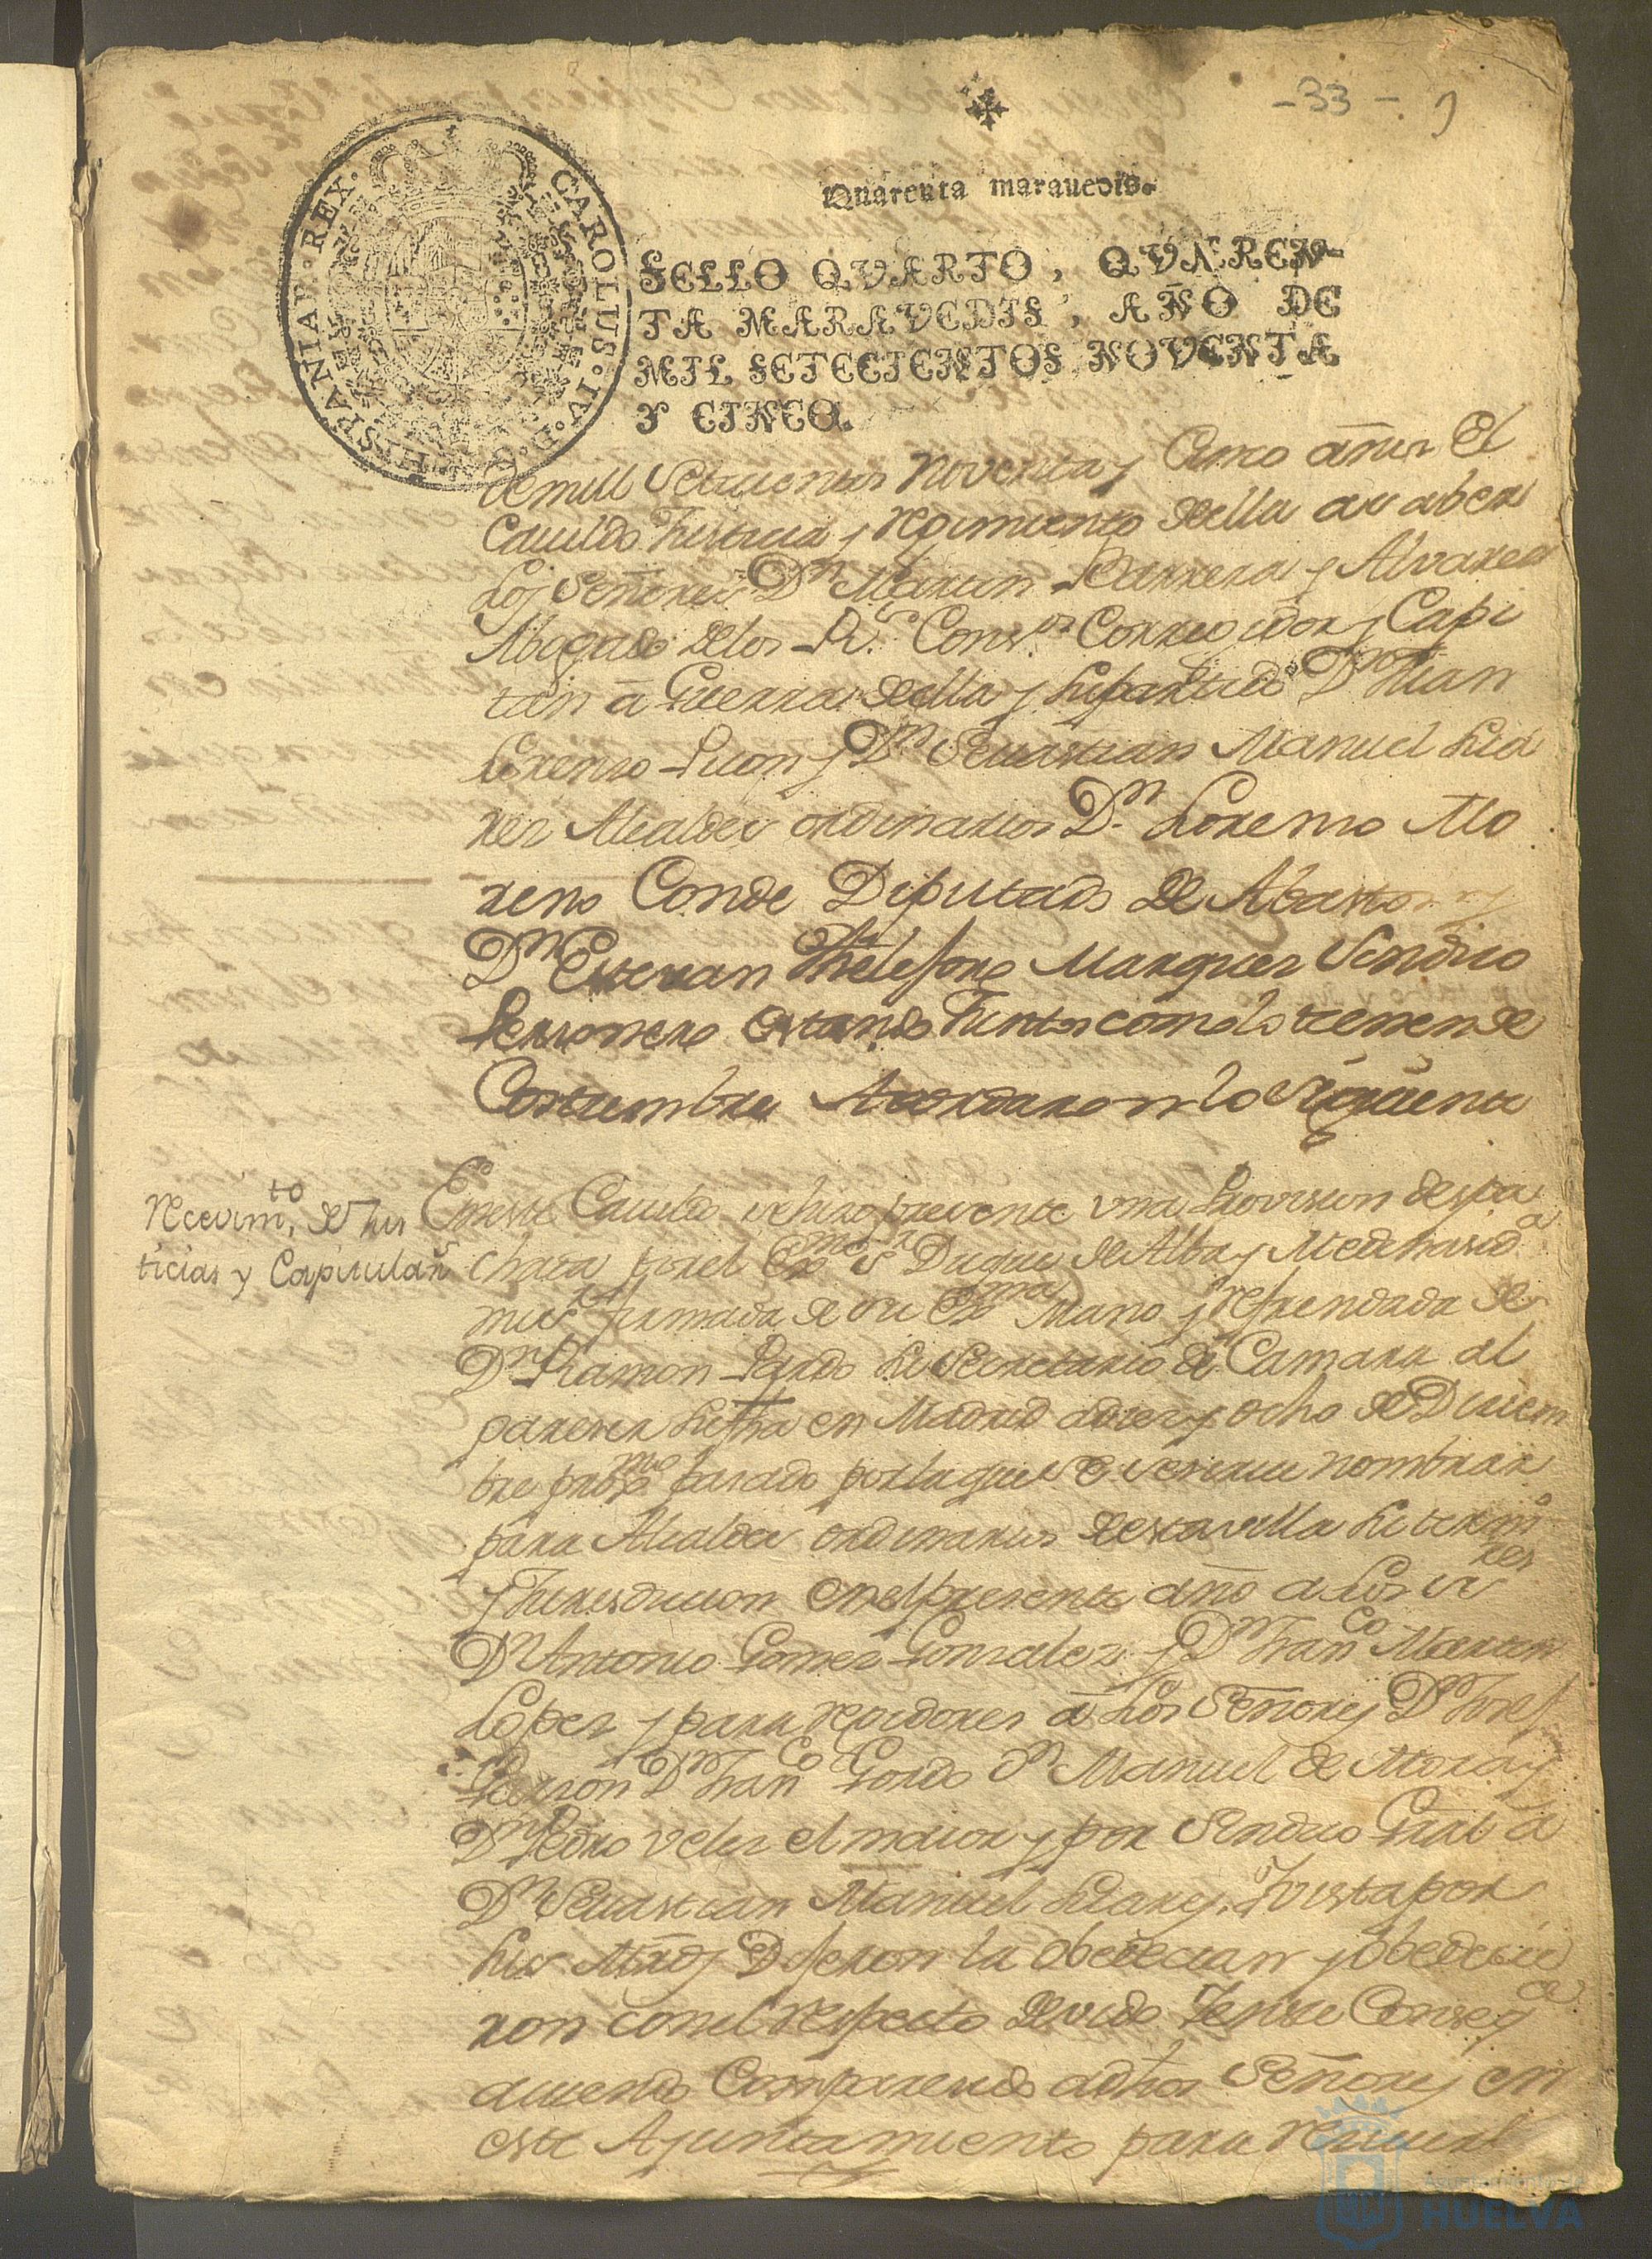 -33-
Quarenta marauedis.
SELLO QVARTO, QVAREN-
TA MARAVEDIS, AÑO DE
MIL SETECIENTOS NOVENTA
Y CINCO.
CAROLUS. IV. D. G. HISPANIAR. REX.
de mill Setecientos Noventa y Cinco años El
Cauildo Justicia y regimiento della au aber
Los Señores Dn Martin Barrera y Alvarez
Abogado delos Rs. Consos. Corregidor y Capi
tan â Guerra della y su partido Dn Juan
Lorenzo Picon y Dn Sevastian Manuel Sua
rez Alcaldes ordinarios Dn Lorenzo Mo
reno Conde Diputado de Abastos y
Dn Estevan Thelesforo Marquez Sindico
Personero estando Juntos como lo tienen de
Costumbre Acordaron lo Siguiente
Recevimto, de Jus
ticias y Capitulars
En este Cauildo se hizo presente vna Provision despa
chada por el Exmo Sr Duque de Alba y Medinasida
mi Sr firmada de su Exma Mano y refrendada de
Dn Ramon Pardo su Secretario de Camara al
parecer su fha en Madrid a diez y ocho de Diciem
bre proxmo pasado por la que S. E. se sirve nombrar
para Alcaldes ordinarios de esta villa su termno
y Jurisdiccion en el presente año a Los Sres
Dn Antonio Gomez Gonzalez y Dn Franco Martin
Lopez y para regidores â Los Señores Dn Josef
Garzon Dn Franco Gordo Dn Manuel de Mora y
Dn Pedro Velez el maior y por Sindico Gral â
Dn Sevastian Manuel Suarez. Y vista por
sus Mrds Dijeron la obedecian y obedecie
ron con el respecto devido Y en su Conseqca
auiendo Comparecido a dhos Señores en
este Ajuntamiento para recivir
HUELVA